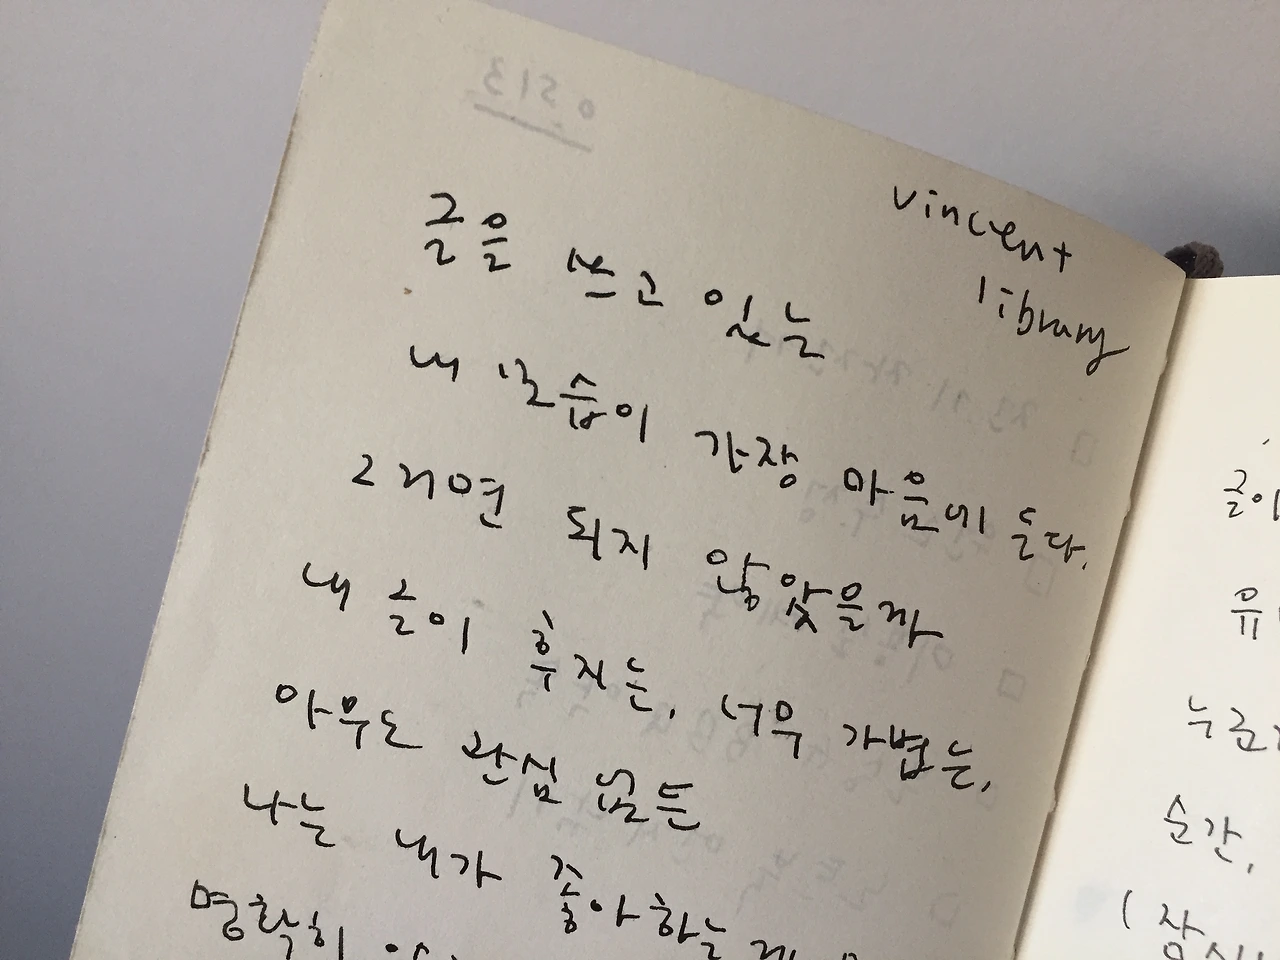 vincent
library
글을 쓰고 있는
내 모습이 가장 마음에 든다.
그거면 되지 않았을까
내 글이 후지든, 너무 가볍든,
아무도 관심 없든
나는 내가 좋아하는 게
명확히
글이
유
누군가
순간,